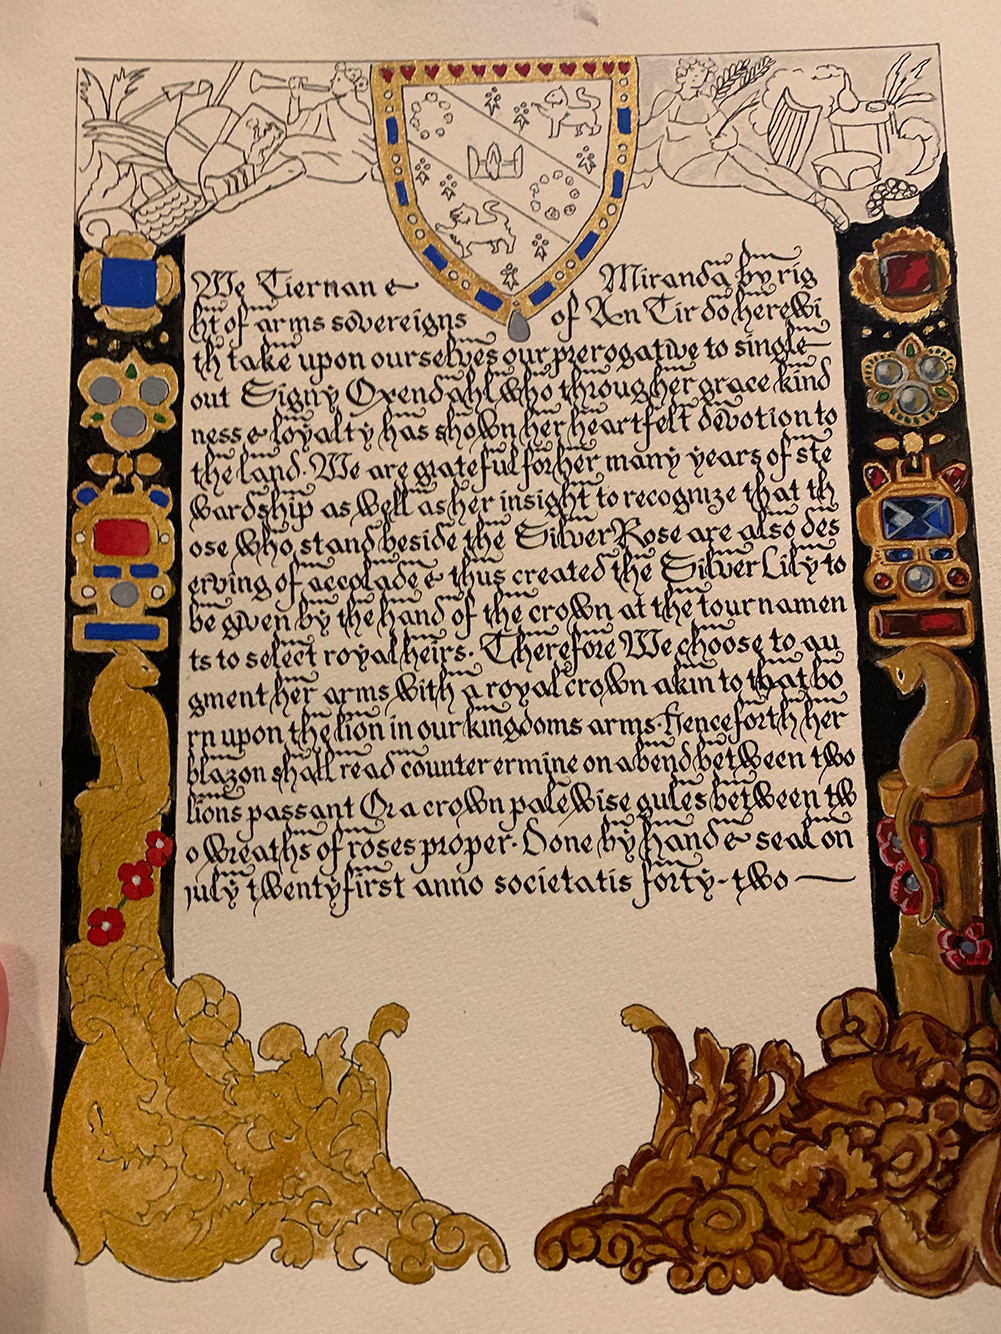 We Tiernan & Miranda by rig
ht of arms sovereigns of An Tir do herewi
th take upon ourselves our prerogative to single
out Signy Oxendahl who through her grace kind
ness & loyalty has shown her heartfelt devotion to
the land. We are grateful for her many years of ste
wardship as well as her insight to recognize that th
ose who stand beside the Silver Rose are also des
erving of accolade & thus created the Silver Lily to
be given by the hand of the crown at the tournamen
ts to select royal heirs. Therefore We choose to au
gment her arms with a royal crown akin to that bo
rn upon the lion in our kingdoms arms. Henceforth her
blazon shall read counter ermine on a bend between two
lions passant Or a crown palewise gules between tw
o wreaths of roses proper. Done by hand & seal on
july twentyfirst anno societatis forty-two